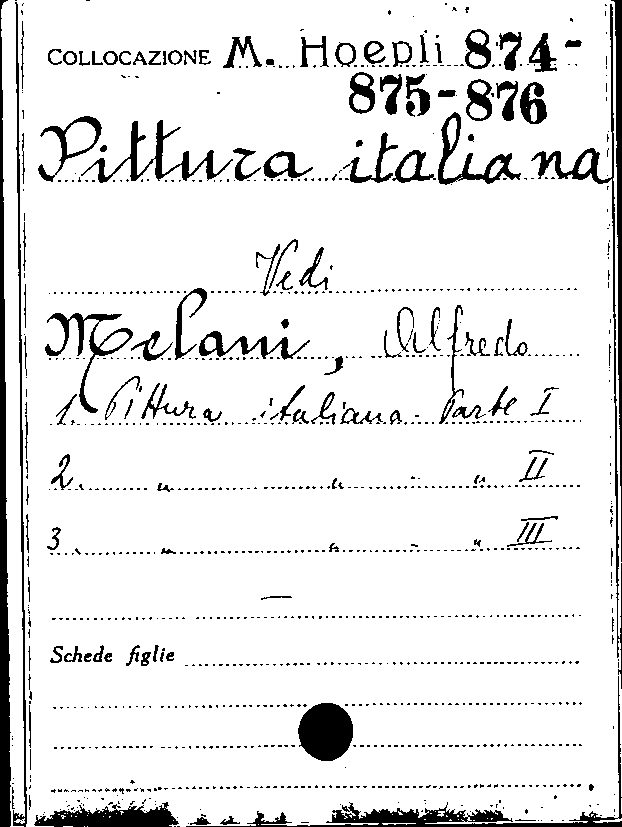 COLLOCAZIONE M. Hoepli 874-
875-876
Pittura italiana
Vedi
Melani, Alfredo
1. Pittura italiana - Parte I
2. " " - " II
3. " " - " III
—
Schede figlie